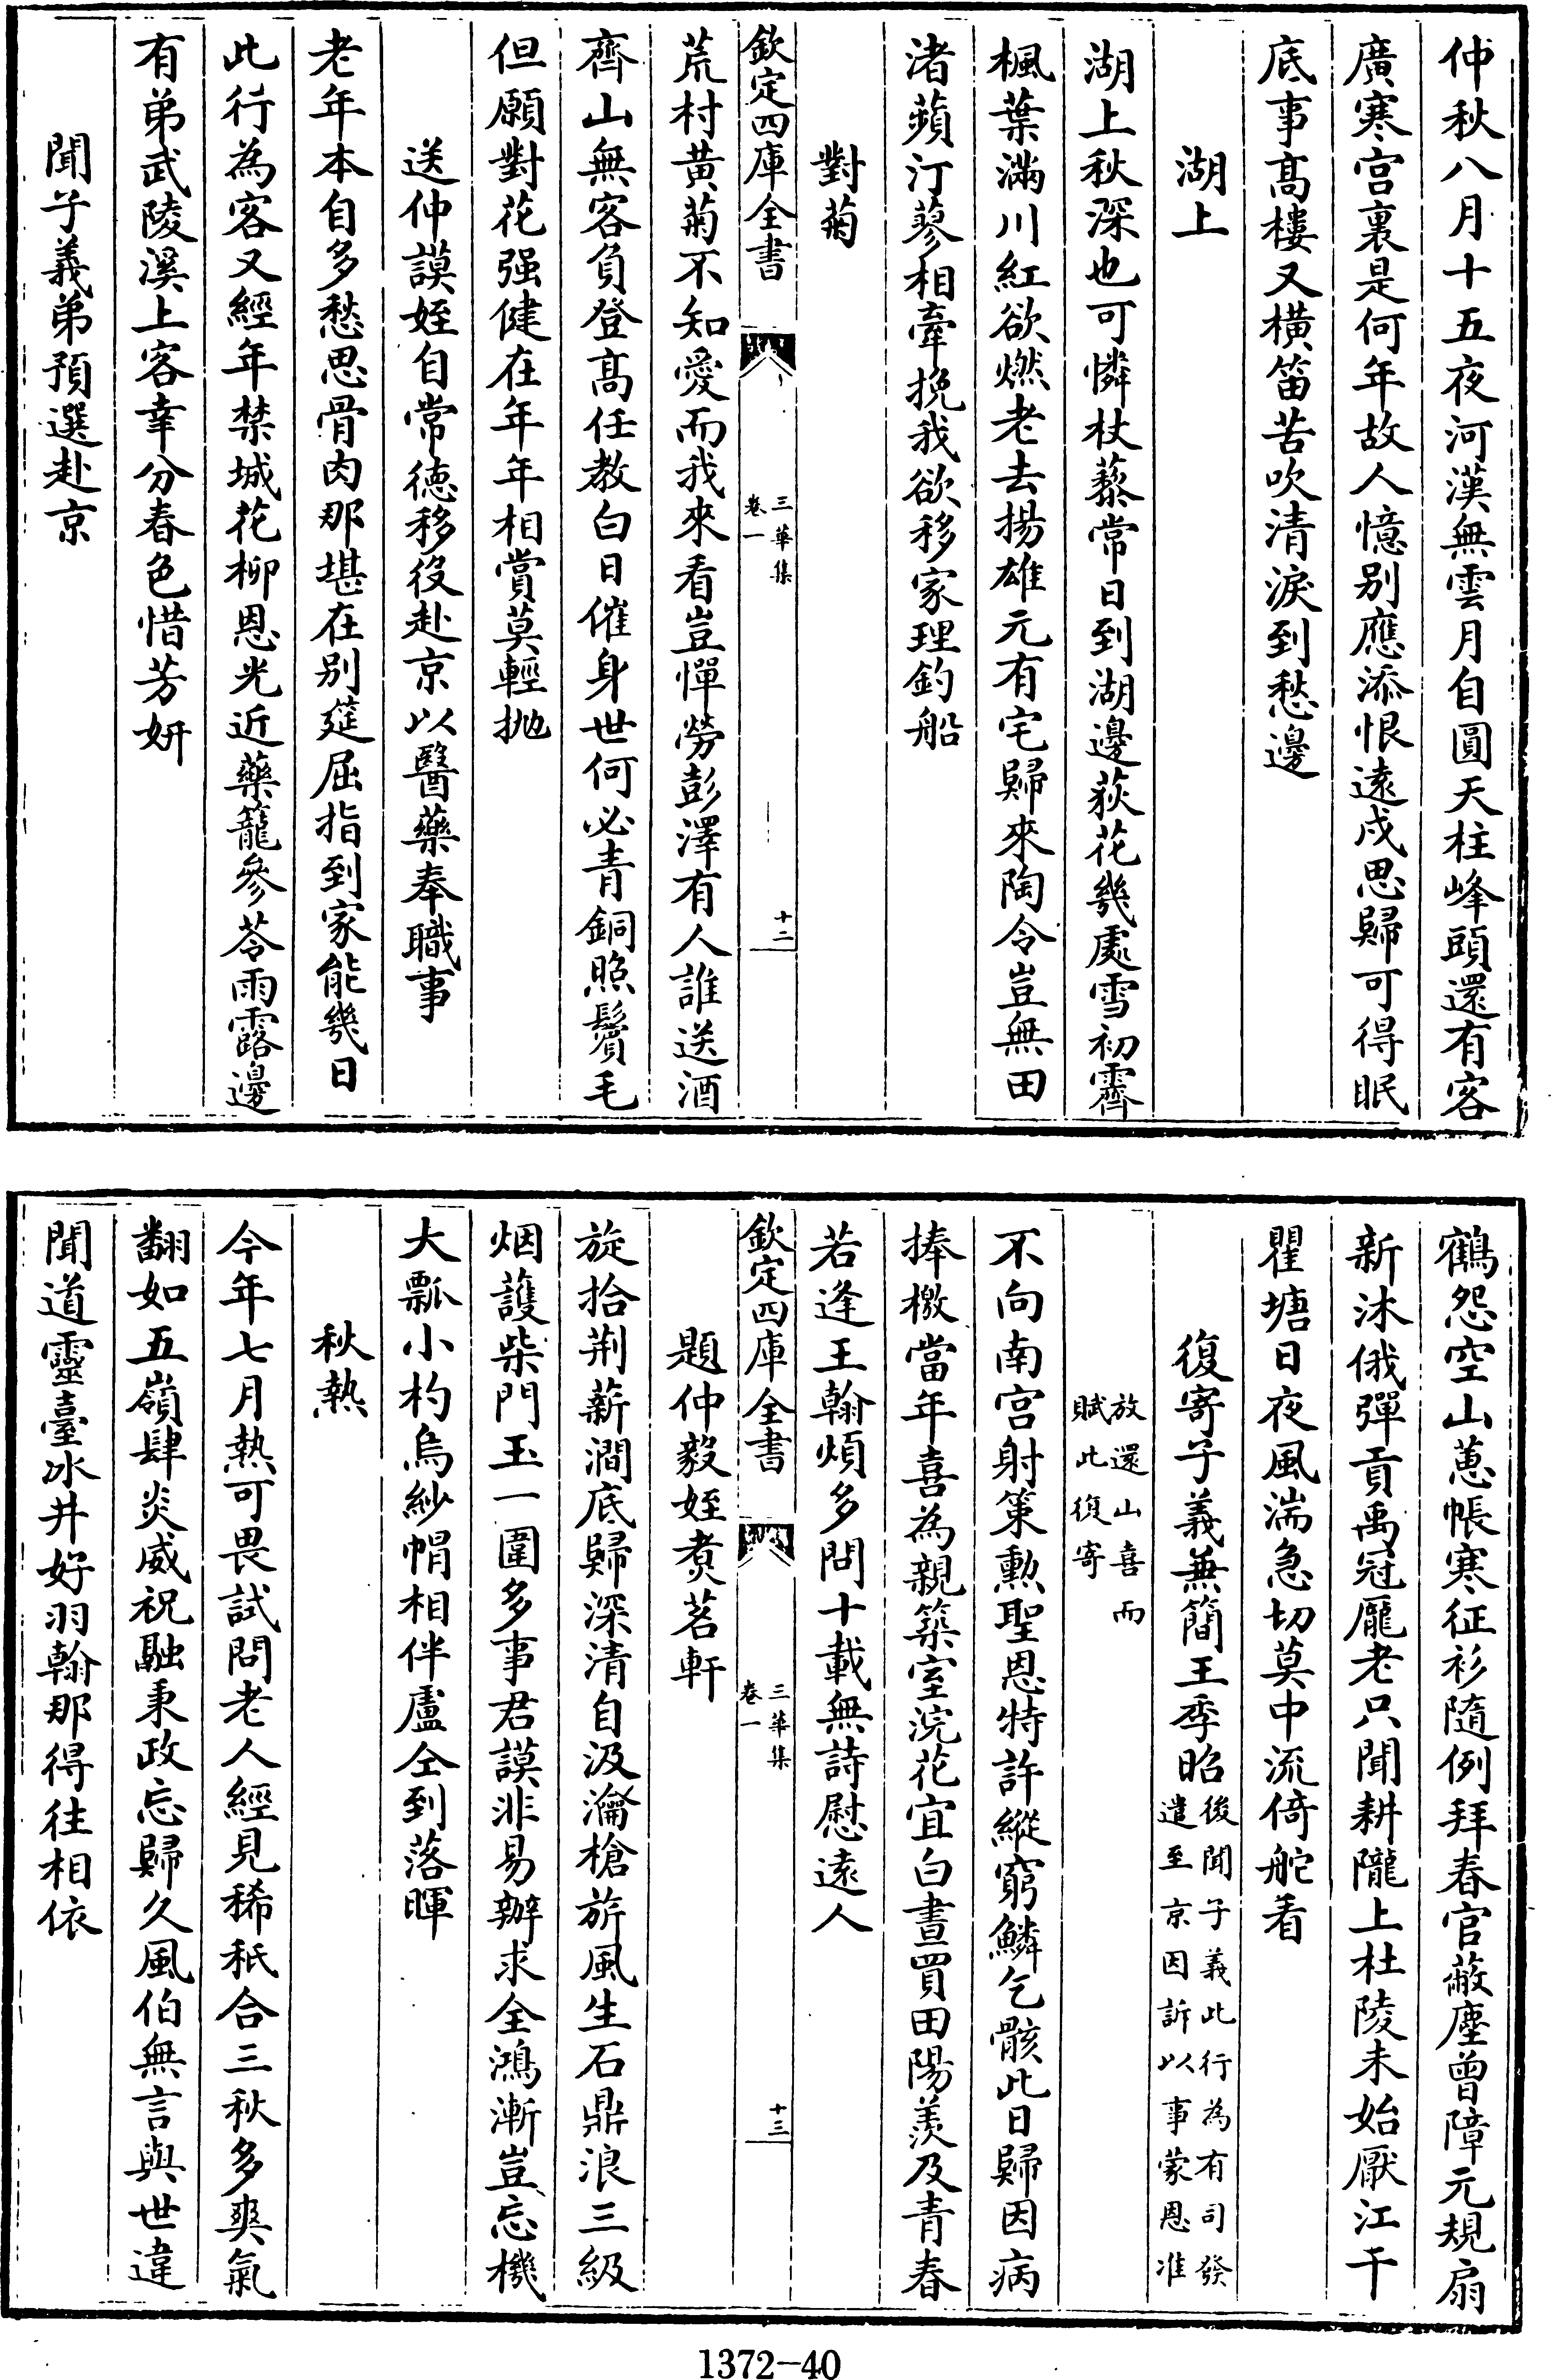 仲秋八月十五夜河漢無雲月自圓天柱峰頭還有客
廣寒宫裏是何年故人憶别應添恨遠戍思歸可得眠
底事髙樓又橫笛苦吹清淚到愁邊
湖上
湖上秋深也可憐杖藜常日到湖邊荻花幾處雪初霽
楓葉滿川紅欲燃老去揚雄元有宅歸來陶令豈無田
渚蘋汀蓼相牽挽我欲移家理釣船
對菊
欽定四庫全書
三華集
卷一
十二
荒村黄菊不知愛而我來看豈憚勞彭澤有人誰送酒
齊山無客負登髙任教白日催身世何必青銅照鬢毛
但願對花强健在年年相賞莫輕抛
送仲謨姪自常徳移役赴京以醫藥奉職事
老年本自多愁思骨肉那堪在别筵屈指到家能幾日
此行為客又經年禁城花柳恩光近藥籠參苓雨露邊
有弟武陵溪上客幸分春色惜芳妍
聞子義弟預選赴京
鶴怨空山蕙帳寒征衫隨例拜春官蔽塵曾障元規扇
新沐俄彈貢禹冠龎老只聞耕隴上杜陵未始厭江干
瞿塘日夜風湍急切莫中流倚舵看
復寄子義兼簡王季昭後聞子義此行為有司發
遣至京因訴以事蒙恩准
放還山喜而
賦此復寄
不向南宫射策勲聖恩特許縱窮鱗乞骸此日歸因病
捧檄當年喜為親築室浣花宜白晝買田陽羨及青春
若逢王翰煩多問十載無詩慰遠人
欽定四庫全書
三華集
卷一
十三
題仲毅姪煑茗軒
旋拾荆薪澗底歸深清自汲瀹槍旂風生石鼎浪三級
烟護柴門玉一圍多事君謨非易辦求全鴻漸豈忘機
大瓢小杓烏紗帽相伴盧仝到落暉
秋熱
今年七月熱可畏試問老人經見稀秖合三秋多爽氣
翻如五嶺肆炎威祝融秉政忘歸久風伯無言與世違
聞道靈臺冰井好羽翰那得往相依
1372-40